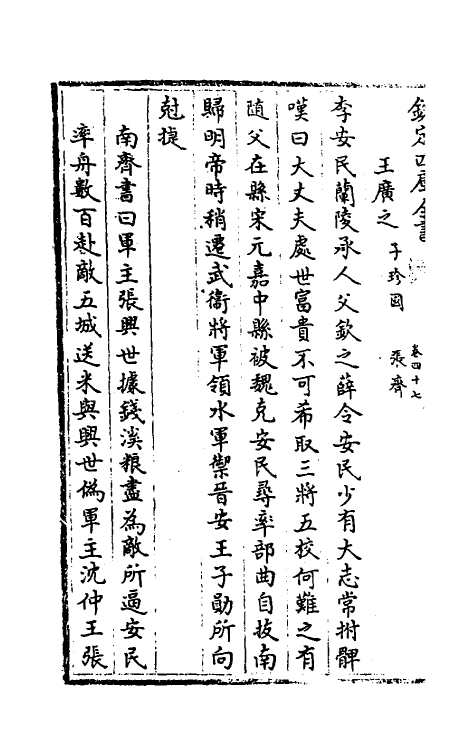 欽定四庫全書
卷四十七
王廣之 子珍國 張齊
李安民蘭陵承人父欽之薛令安民少有大志常拊髀
嘆曰大丈夫處世富貴不可希取三將五校何難之有
隨父在縣宋元嘉中縣被魏克安民尋率部曲自拔南
歸明帝時稍遷武衞將軍領水軍禦晉安王子勛所向
尅捷
南齊書曰軍主張興世據錢溪糧盡為敵所逼安民
率舟數百赴敵五城送米與興世偽軍主沈仲王張